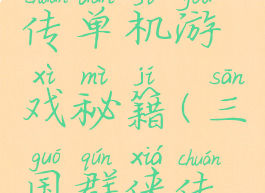 chuán dān jī yóu
传单机游
xì mì jí sān
戏秘籍(三
guó qún xiá chuán
国群侠传